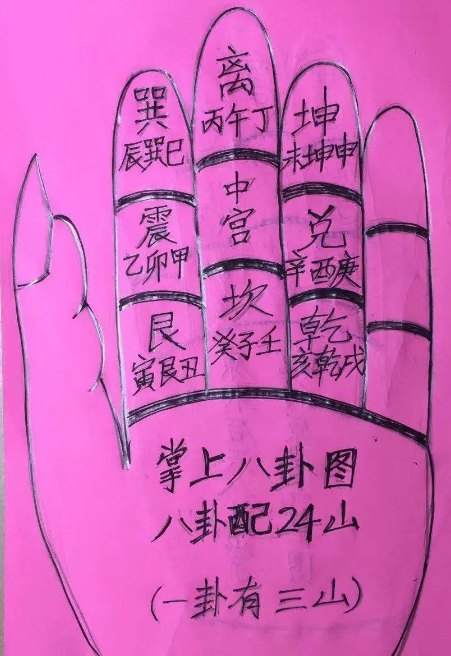 巽
辰巽巳
离
丙午丁
坤
未坤申
震
乙卯甲
中
宫
兑
辛酉庚
艮
寅艮丑
坎
癸子壬
乾
亥乾戌
掌上八卦图
八卦配24山
(一卦有三山)